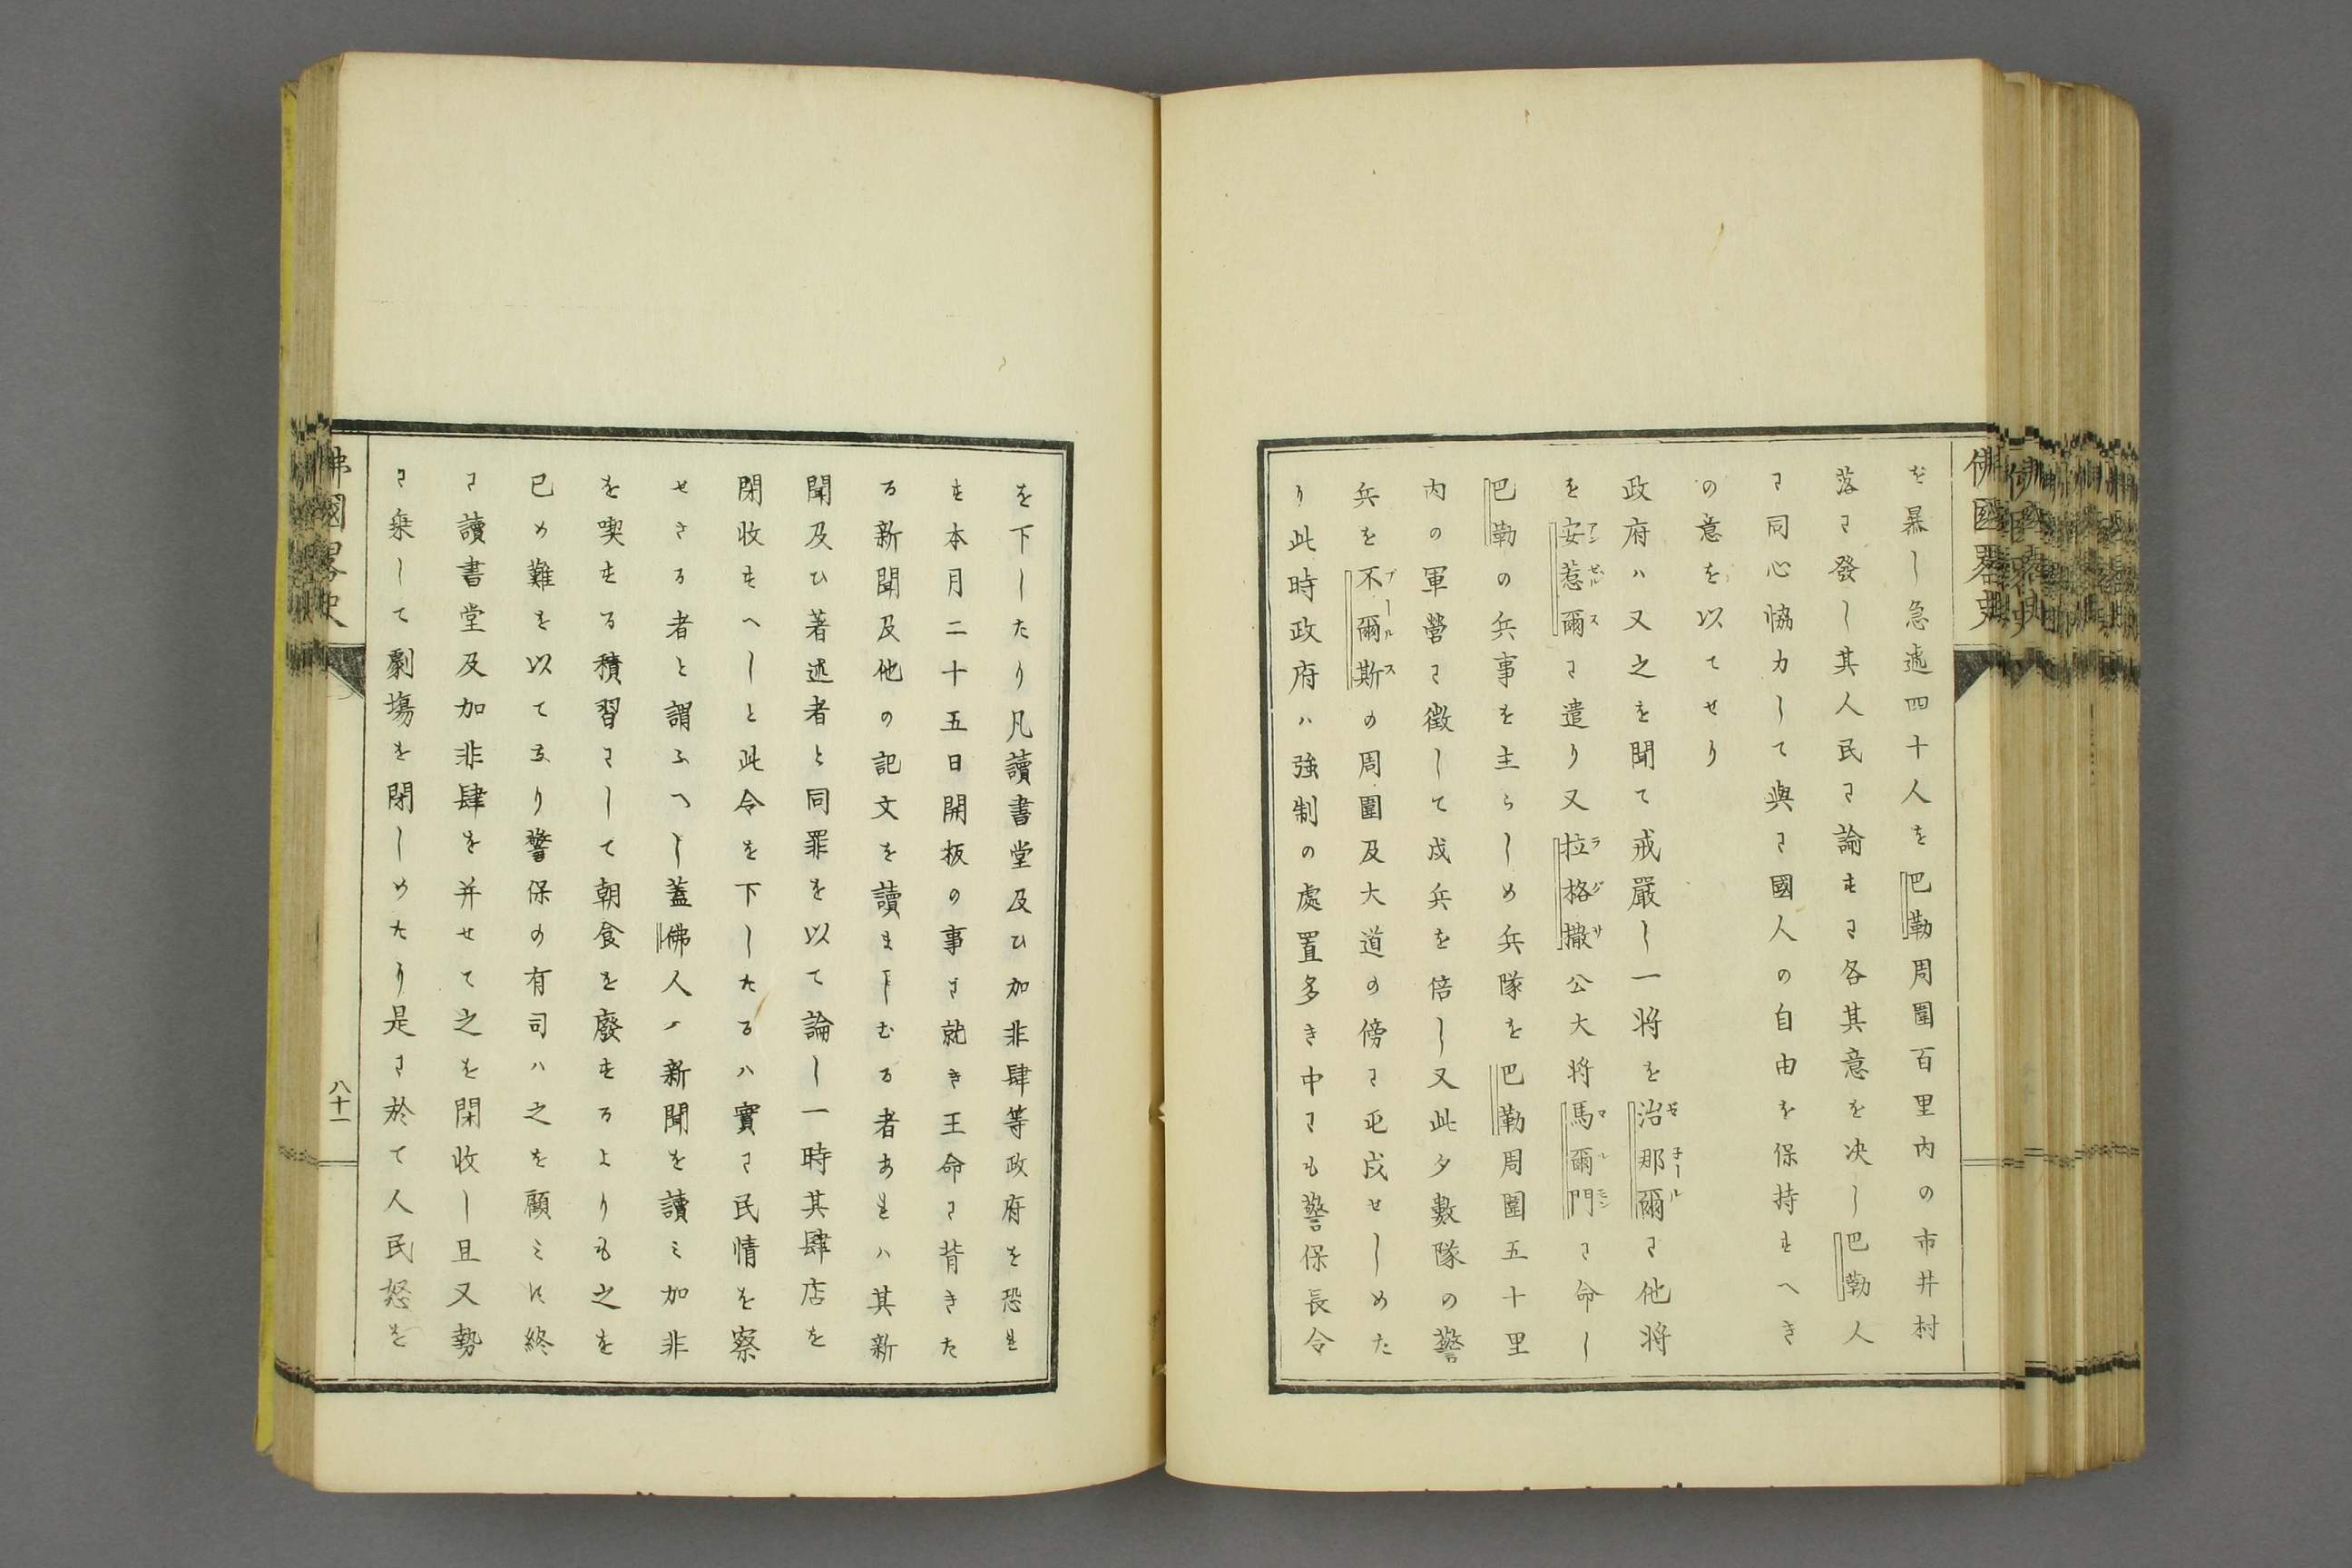 佛國畧史
を暴し急遞四十人を巴勒周圍百里内の市井村
落に發し其人民に論すに各其意を决し巴勒人
に同心恊力して與に國人の自由を保持すへき
の意を以てせり
政府ハ又之を聞て戒嚴し一将を治那爾に他将
ゼ子ール
を安惹爾に遣り又拉格撒公大将馬爾門に命し
アンゼルス
ラグサ
マルモン
巴勒の兵事を主らしめ兵隊を巴勒周圍五十里
内の軍營に徴して戍兵を倍し又此夕數隊の警
兵を不爾斯の周圍及大道の傍に屯戍せしめた
ブールス
り此時政府ハ強制の處置多き中にも警保長令
を下したり凡讀書堂及ひ加非肆等政府を恐れ
す本月二十五日開板の事に就き王命に背きた
る新聞及他の記文を讀ましむる者あれハ其新
聞及ひ著述者と同罪を以て論し一時其肆店を
閉收すへしと此令を下したるハ實に民情を察
せさる者と謂ふへし蓋佛人ノ新聞を讀ミ加非
を喫する積習にして朝食を廢するよりも之を
已め難を以てなり警保の有司ハ之を顧ミす終
に讀書堂及加非肆を并せて之を閉收し且又勢
に乗して劇塲を閉しめたり是に於て人民怒を
佛國畧史
八十一